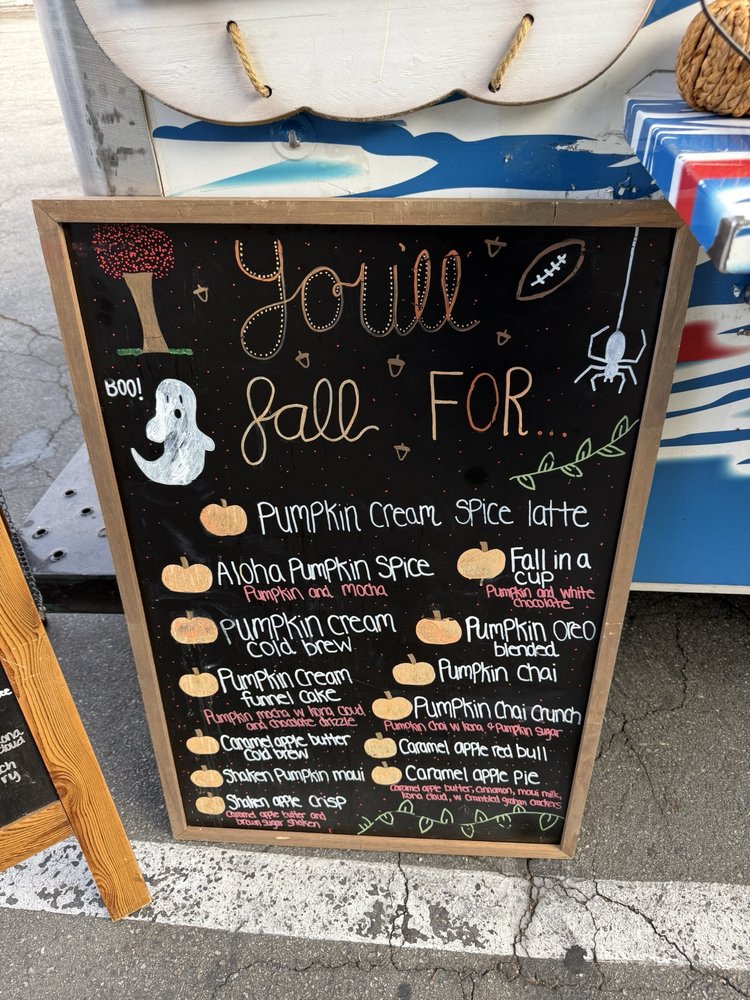 You'll
fall FOR...
BOO!
Pumpkin Cream Spice latte
Aloha Pumpkin Spice
Pumpkin and mocha
Fall in a
cup
Pumpkin and white
chocolate
Pumpkin Cream
cold brew
Pumpkin Oreo
blended
Pumpkin Cream
funnel cake
Pumpkin mocha w kona cloud
and chocolate drizzle
Pumpkin Chai
Pumpkin Chai Crunch
Pumpkin Chai w kona & Pumpkin Sugar
Caramel apple butter
Cold brew
Caramel apple red bull
Shaken Pumpkin maui
Caramel apple Pie
Caramel apple butter, cinnamon, maui milk,
kona cloud, w Crumbled graham Crackers
Shaken apple Crisp
Caramel apple butter and
brown Sugar Shaken
cloud
ch
ry